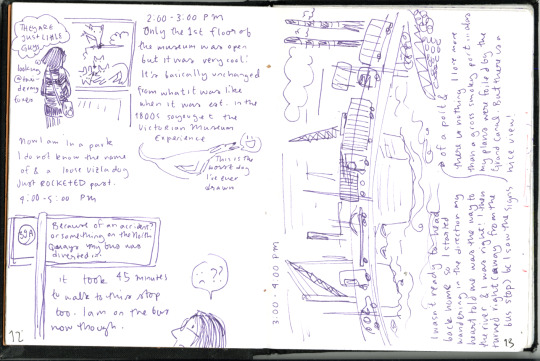 THEY ARE
JUST LITTLE
GUYS
looking
@ taxi-
dermy
foxes
2:00 - 3:00 PM
Only the 1st floor of
the museum was open
but it was very cool!
It's basically unchanged
from what it was like
when it was est. in the
1800s so you get the
Victorian Museum
Experience
This is the
worst dog
I've ever
drawn
Now I am in a park
I do not know the name
of & a loose vizla dog
just ROCKETED past.
4:00 - 5:00 PM
Because of an accident?
or something on the North
Quays my bus was
diverted
it took 45 minutes
to walk to this stop
too. I am on the bus
now though.
12
3:00 - 4:00 PM
I wasn't ready to head
back home so I started
wandering in the direction my
heart told me was the way to
the river & I was right! I then
turned right (away from the
bus stop) bc I saw the signs
of a port &
there is nothing I love more
than a
my plans were foiled by the
Grand Canal. But there is a
nice view!
13